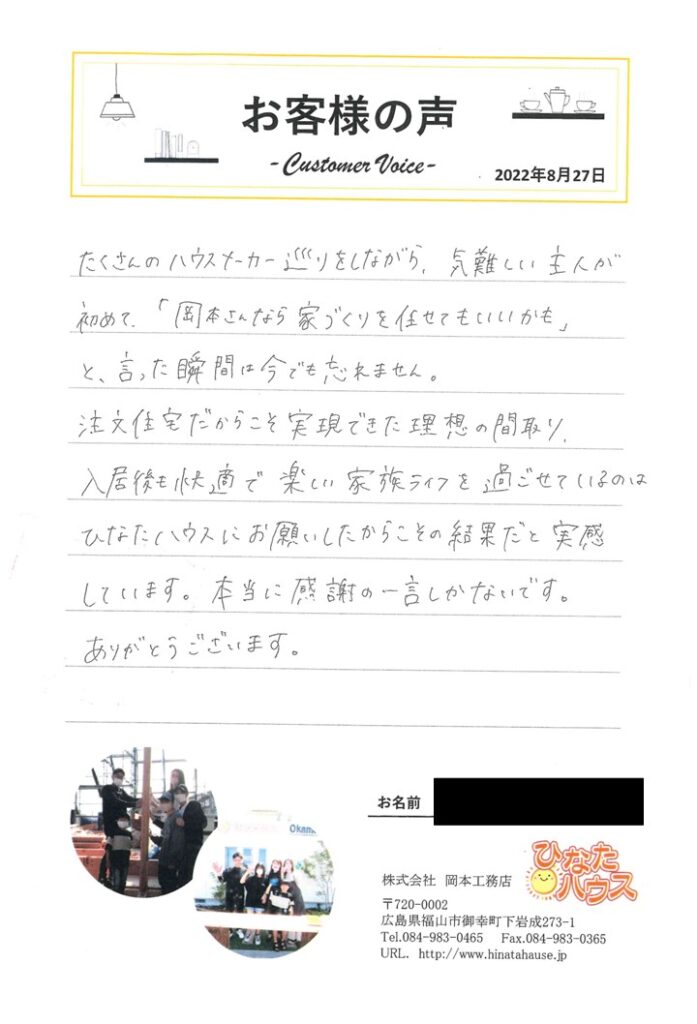 お客様の声
-Customer Voice-
2022年8月27日
たくさんのハウスメーカー巡りをしながら、気難しい主人が
初めて、「岡本さんなら家づくりを任せてもいいかも」
と、言った瞬間は今でも忘れません。
注文住宅だからこそ実現できた理想の間取り、
入居後も快適で楽しい家族ライフを過ごせているのは
ひなたハウスにお願いしたからこその結果だと実感
しています。本当に感謝の一言しかないです。
ありがとうございます。
お名前
ひなた
ハウス
株式会社 岡本工務店
〒720-0002
広島県福山市御幸町下岩成273-1
Tel.084-983-0465 Fax.084-983-0365
URL. http://www.hinatahause.jp